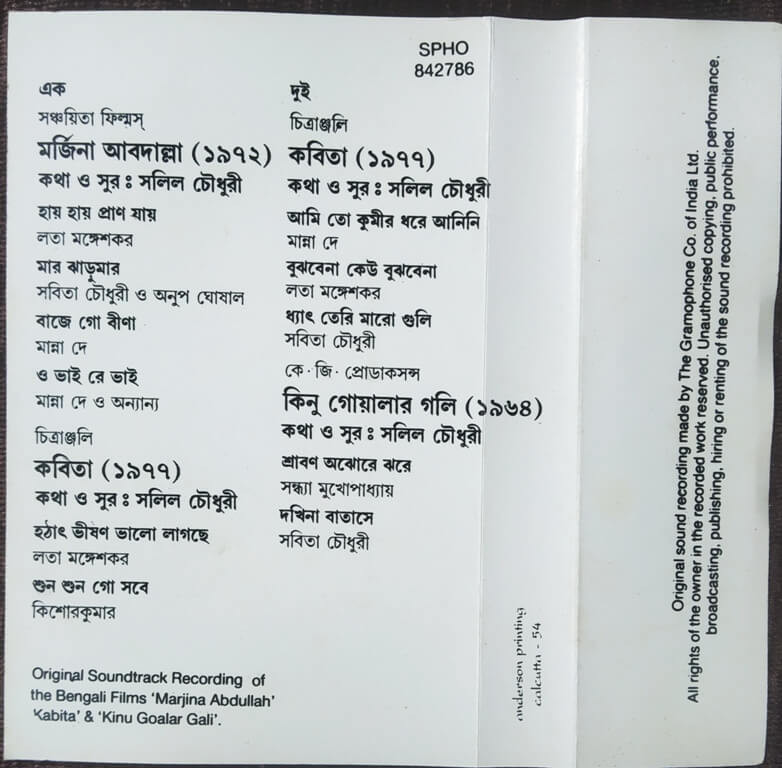 SPHO
842786
এক
সঞ্চয়িতা ফিল্মস্
মর্জিনা আবদাল্লা (১৯৭২)
কথা ও সুর : সলিল চৌধুরী
হায় হায় প্রাণ যায়
লতা মঙ্গেশকর
মার ঝাড়ুমার
সবিতা চৌধুরী ও অনুপ ঘোষাল
বাজে গো বীণা
মান্না দে
ও ভাই রে ভাই
মান্না দে ও অন্যান্য
চিত্রাঞ্জলি
কবিতা (১৯৭৭)
কথা ও সুর : সলিল চৌধুরী
হঠাৎ ভীষণ ভালো লাগছে
লতা মঙ্গেশকর
শুন শুন গো সবে
কিশোরকুমার
দুই
চিত্রাঞ্জলি
কবিতা (১৯৭৭)
কথা ও সুর : সলিল চৌধুরী
আমি তো কুমীর ধরে আনিনি
মান্না দে
বুঝবেনা কেউ বুঝবেনা
লতা মঙ্গেশকর
ধ্যাৎ তেরি মারো গুলি
সবিতা চৌধুরী
কে · জি · প্রোডাকসন্স
কিনু গোয়ালার গলি (১৯৬৪)
কথা ও সুর : সলিল চৌধুরী
শ্রাবণ অঝোরে ঝরে
সন্ধ্যা মুখোপাধ্যায়
দখিনা বাতাসে
সবিতা চৌধুরী
Original Soundtrack Recording of
the Bengali Films 'Marjina Abdullah'
'Kabita' & 'Kinu Goalar Gali'.
anderson printing
calcutta - 54
Original sound recording made by The Gramophone Co. of India Ltd.
All rights of the owner in the recorded work reserved. Unauthorised copying, public performance,
broadcasting, publishing, hiring or renting of the sound recording prohibited.